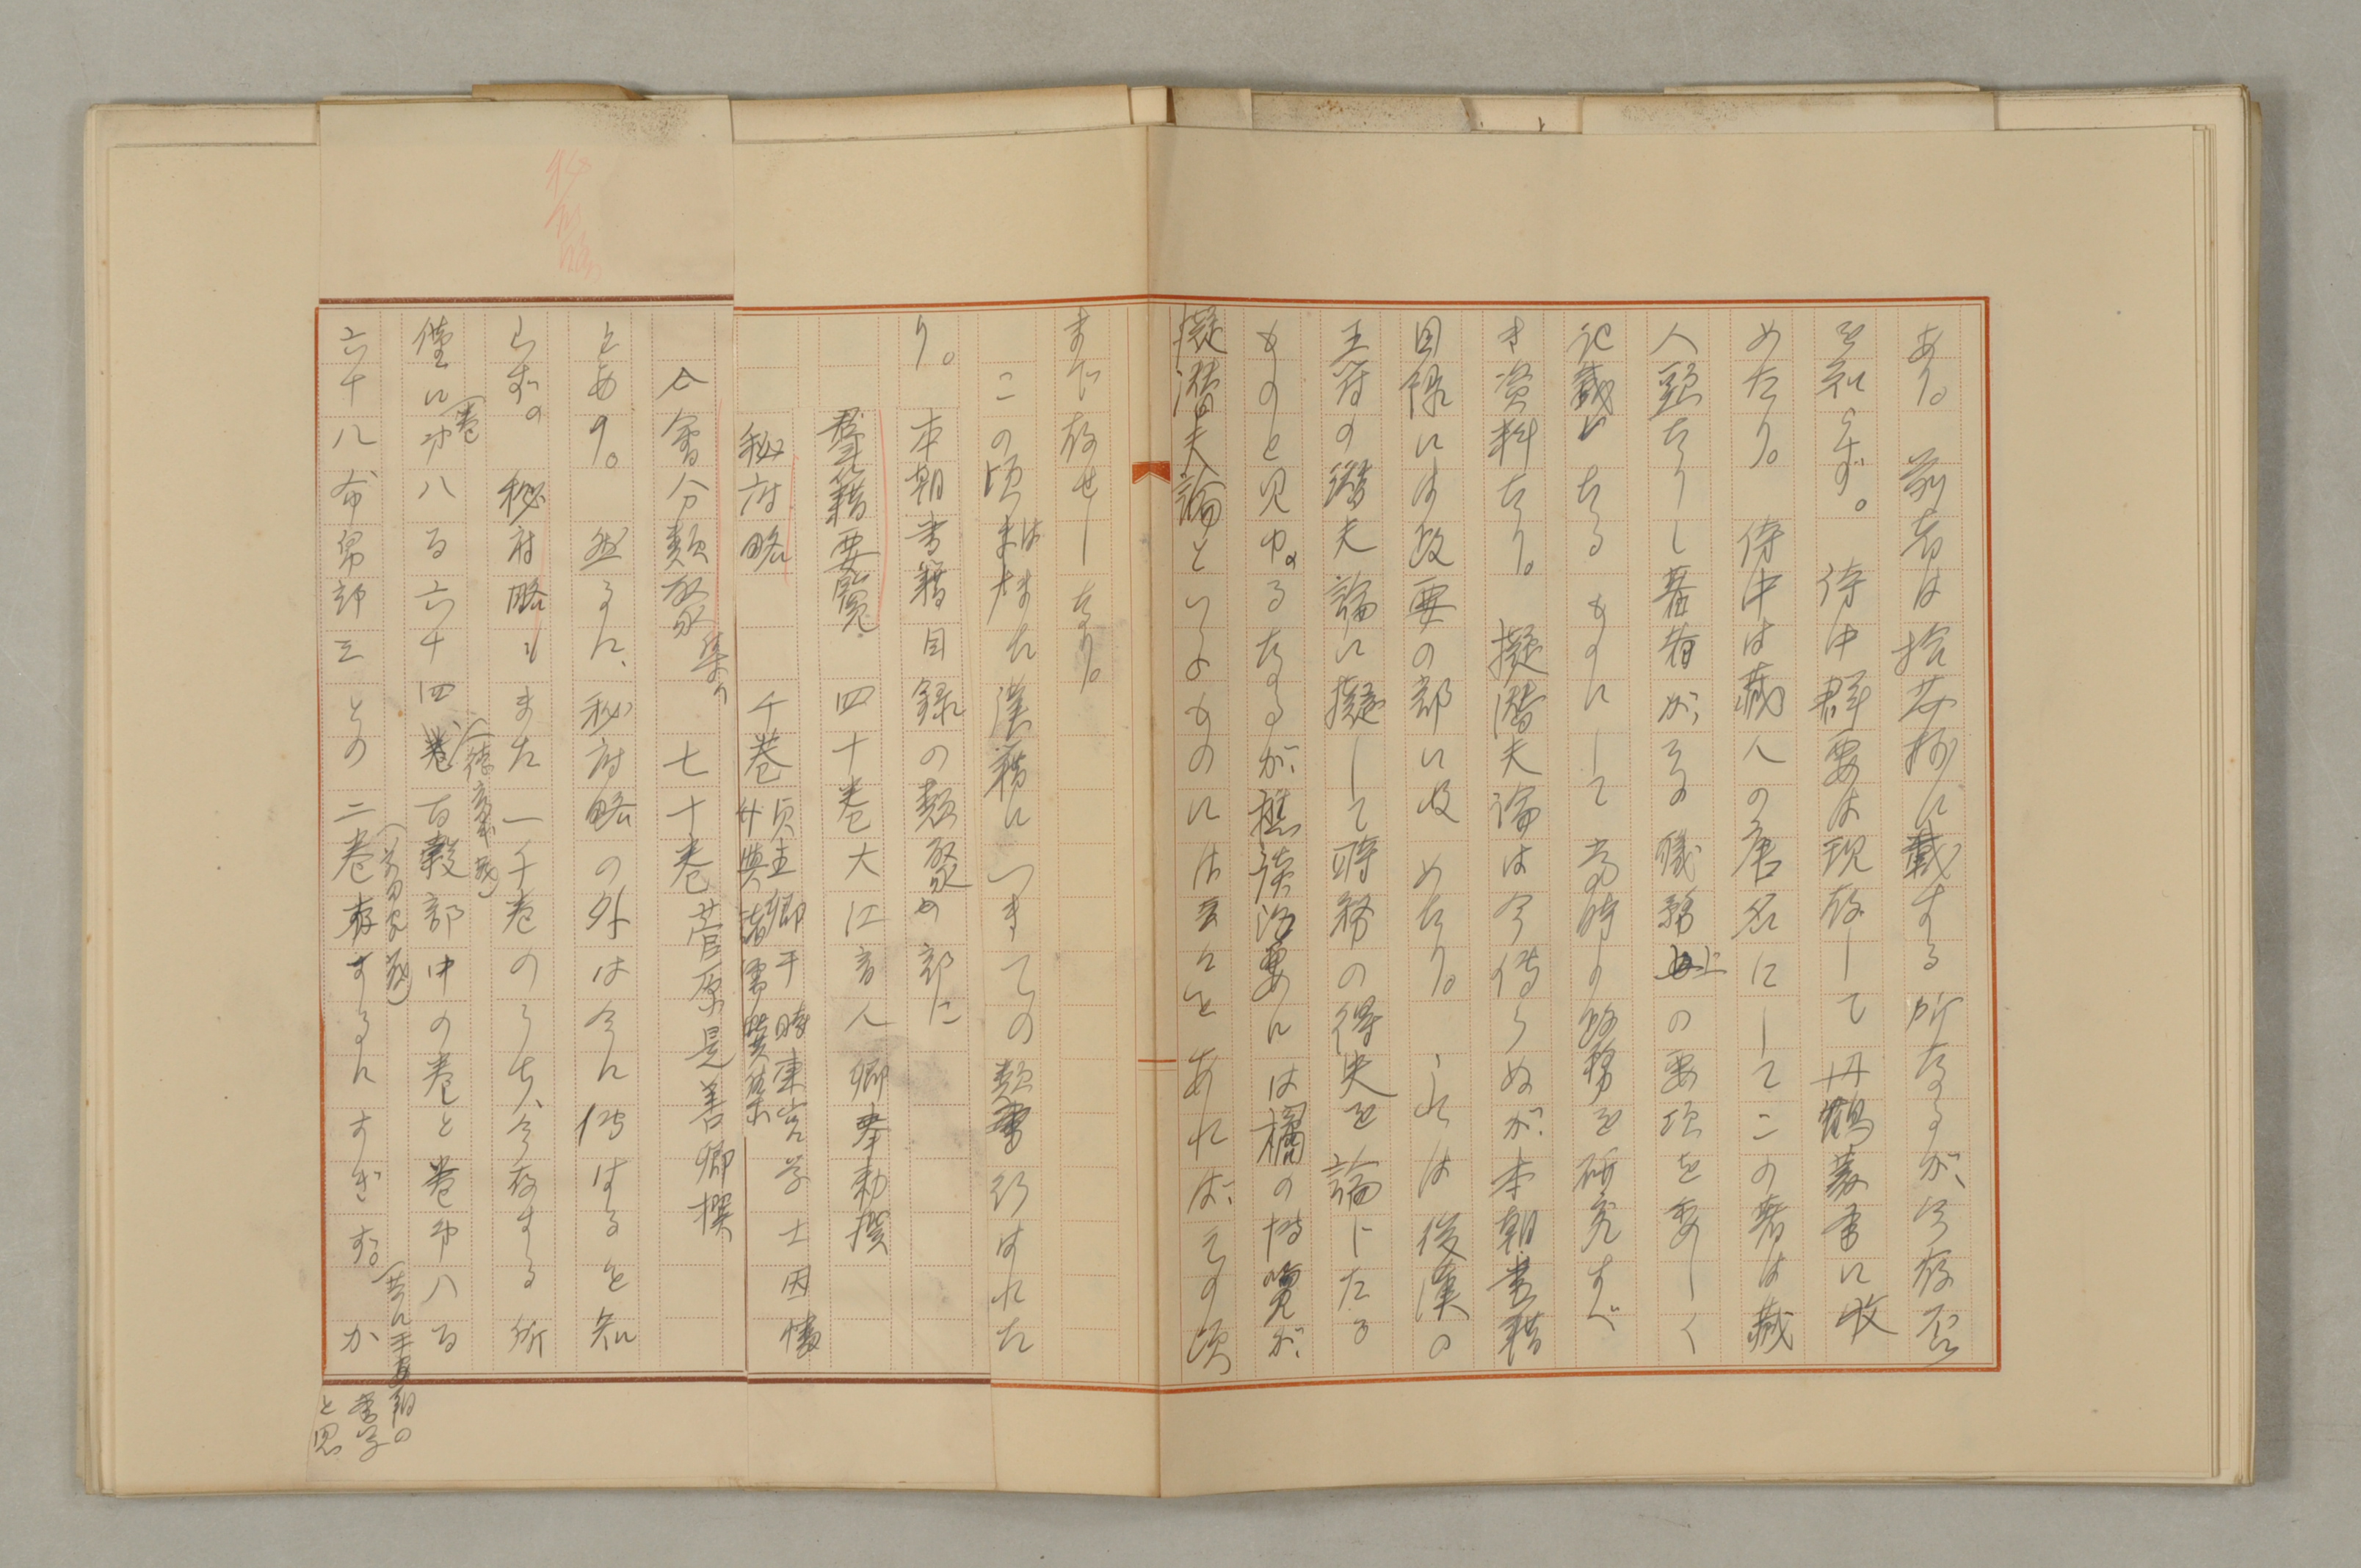 あり。前者は拾芥抄に載する所なるが、今存否
を知らず。侍中群要は現存して丹鶴叢書に収
めたり。侍中は蔵人の唐名にしてこの書は蔵
人頭たりし著者がその職務上の要項を委しく
記載したるものにして当時の政務を研究すべ
き資料なり。擬潜夫論は今伝らぬが、本朝書籍
目録には政要の部に収めたり。これは後漢の
王符の潜夫論に擬して時務の得失を論じたる
ものと見ゆるなるが、樵談治要には橘の博覧が
擬潜夫論といふものには云々とあれば、その頃
まで存せしなり。
この頃はまた漢籍につきての類書行はれた
り。本朝書籍目録の類聚の部に
群籍要覧 四十巻 大江音人卿奉勅撰
秘府略 千巻
貞主卿于時東宮学士因幡
廿与諸儒撰集
会分類聚集 七十巻 菅原是善卿撰
とあり。然るに、秘府略の外は今に伝はるを知
らず。秘府略もまた一千巻のうち、今存する所
僅に(巻)第八百六十四巻百穀部中の巻と巻第八百
六十八布帛部三との二巻存するにすぎず。か
(前田家蔵)
(共に平安朝の
書写
と思